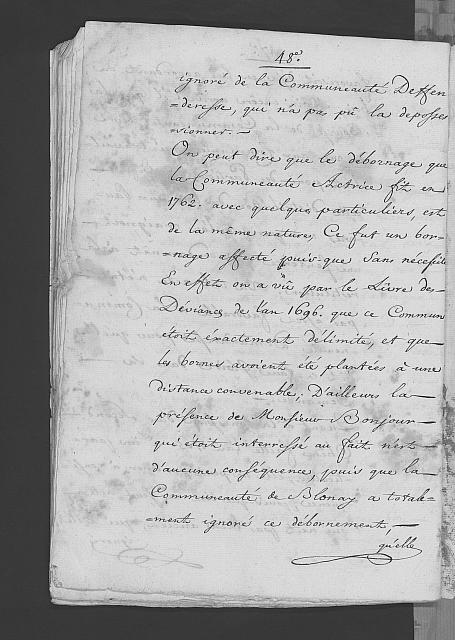 48.e
ignoré de la Communeauté Deffen
=deresse, qui n'a pas pû la deposses
=sionner. —
On peut dire que le débornage que
la Communeauté Actrice fit en
1762. avec quelques particuliers, est
de la même nature, Ce fut un bor-
=nage affecté puis que Sans nécessité
En effet on a vû par le Livre de-
Déviances de l'an 1696. que ce Commun
étoit éxactement délimité, et que
les bornes avoient été plantées à une
distance convenable; D'ailleurs la—
présence de Monsieur Bonjour—
qui étoit interressé au fait n'est—
d'aucune conséquence, puis que la—
Communeauté de Blonay a totale=
=ment ignoré ce débornement, —
qu'elle